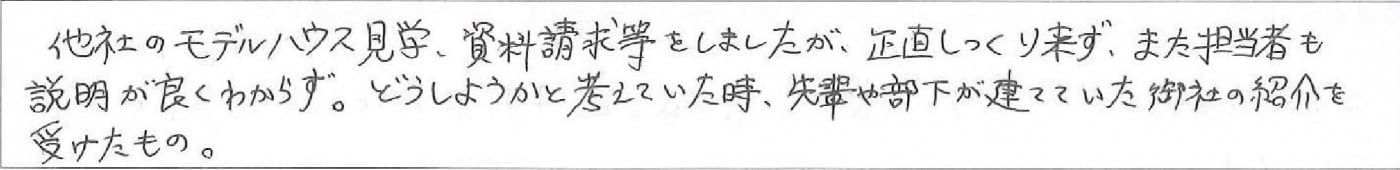 他社のモデルハウス見学、資料請求等をしましたが、正直しっくり来ず、また担当者も
説明が良くわからず。どうしようかと考えていた時、先輩や部下が建てていた御社の紹介を
受けたもの。